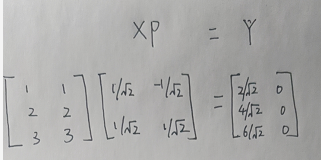 XP = Y
[1 1; 2 2; 3 3] [1/√2 -1/√2; 1/√2 1/√2] = [2/√2 0; 4/√2 0; 6/√2 0]